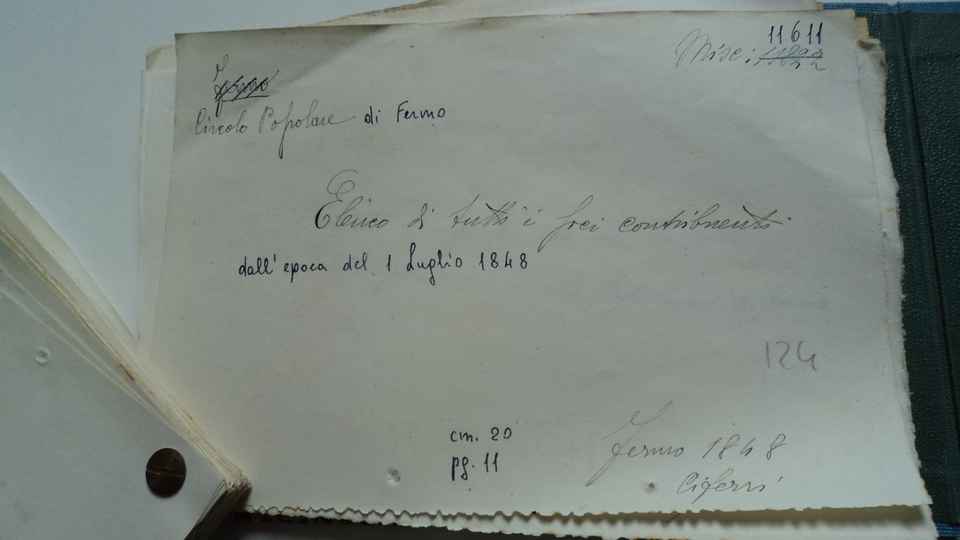 11611
Misc:
Circolo Popolare di Fermo
Elenco di tutti i soci contribuenti
dall'epoca del 1 Luglio 1848
124
cm. 20
pg. 11
Fermo 1848
Ciferri